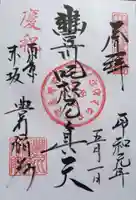 奉拝
令和元年
五月一日
豊川吒枳尼真天
慶祝
東京
赤坂
豊川稲荷